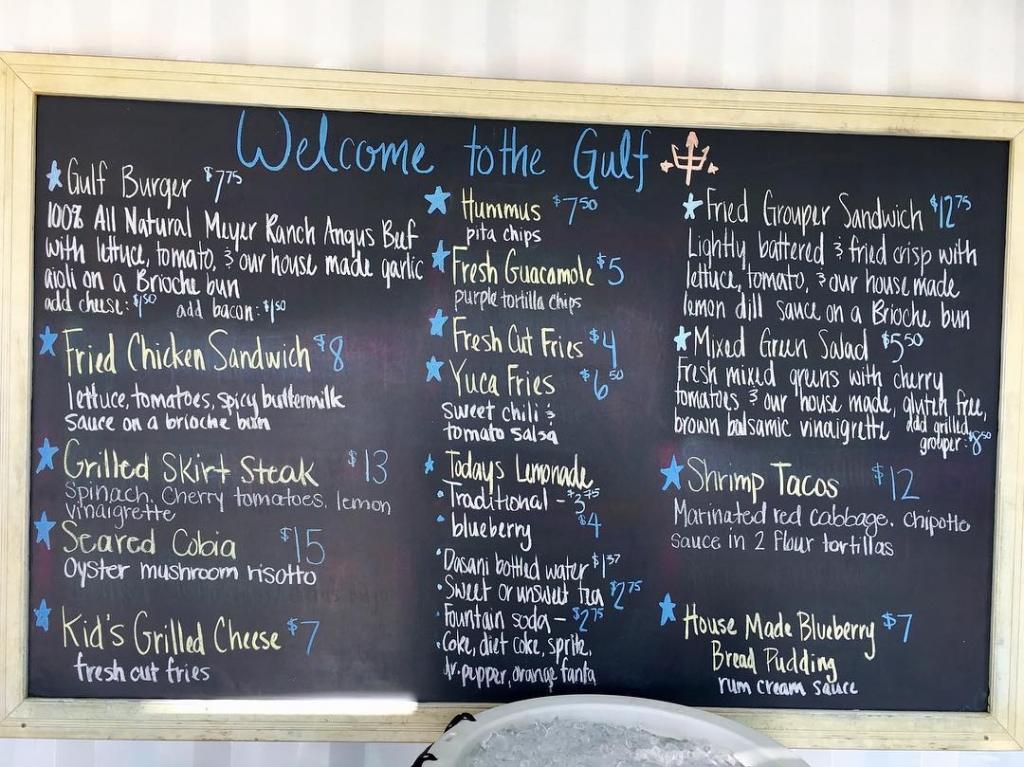 Welcome to the Gulf
Gulf Burger $7.75
100% All Natural Meyer Ranch Angus Beef
with lettuce, tomato, & our house made garlic
aioli on a Brioche bun
add cheese: $1.50 add bacon: $1.50
Fried Chicken Sandwich $8
lettuce, tomatoes, spicy buttermilk
sauce on a brioche bun
Grilled Skirt Steak $13
Spinach, Cherry tomatoes, lemon
vinaigrette
Seared Cobia $15
Oyster mushroom risotto
Kid's Grilled Cheese $7
fresh cut fries
Hummus $7.50
pita chips
Fresh Guacamole $5
purple tortilla chips
Fresh Cut Fries $4
Yuca Fries $6.50
sweet chili &
tomato salsa
Todays Lemonade
Traditional - $3.75
blueberry $4
Dasani bottled water $1.37
Sweet or unsweet tea $2.75
Fountain soda - $2.75
Coke, diet coke, sprite,
dr. pepper, orange fanta
Fried Grouper Sandwich $12.75
Lightly battered & fried crisp with
lettuce, tomato, & our house made
lemon dill sauce on a Brioche bun
Mixed Green Salad $5.50
Fresh mixed greens with cherry
tomatoes & our house made, gluten free,
brown balsamic vinaigrette add grilled
grouper: $8.50
Shrimp Tacos $12
Marinated red cabbage, chipotle
sauce in 2 flour tortillas
House Made Blueberry $7
Bread Pudding
rum cream sauce